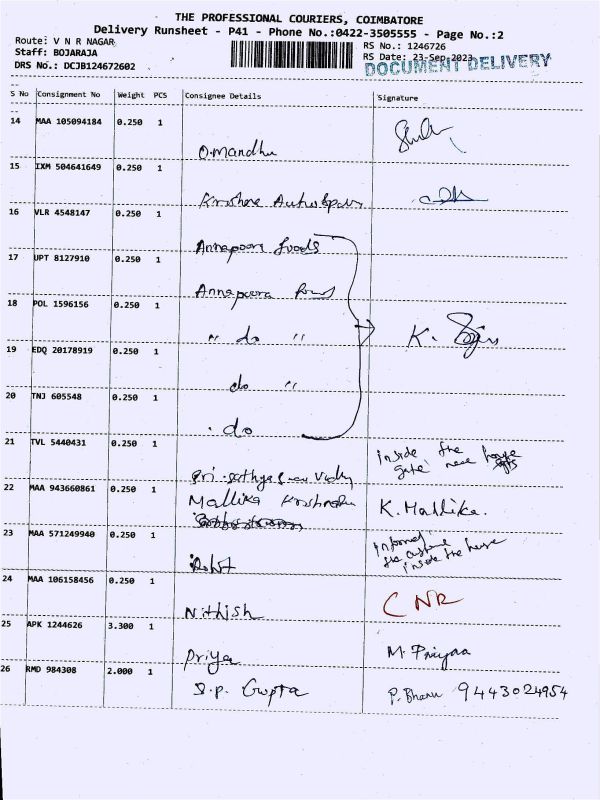 THE PROFESSIONAL COURIERS, COIMBATORE
Delivery Runsheet - P41 - Phone No.:0422-3505555 - Page No.:2
Route: V N R NAGAR
RS No.: 1246726
Staff: BOJARAJA
RS Date: 23-Sep-2023
DRS No.: DCJB124672602
DOCUMENT DELIVERY
S No Consignment No Weight PCS Consignee Details Signature
14 MAA 105094184 0.250 1
O.mandhu
15 IXM 504641649 0.250 1
Krishna
16 VLR 4548147 0.250 1
Annapoora foods
17 UPT 8127910 0.250 1
Annapoora
18 POL 1596156 0.250 1
" do " K.
19 EDQ 20178919 0.250 1
do "
20 TNJ 605548 0.250 1
. do
21 TVL 5440431 0.250 1
inside the
gate near
Sri
22 MAA 943660861 0.250 1
Mallika K. Mallika.
23 MAA 571249940 0.250 1
informed
inside the house
24 MAA 106158456 0.250 1
Nithish CNR
25 APK 1244626 3.300 1
Priya M. Priyaa
26 RMD 984308 2.000 1
S.P. Gupta P. Bhanu 9443024954